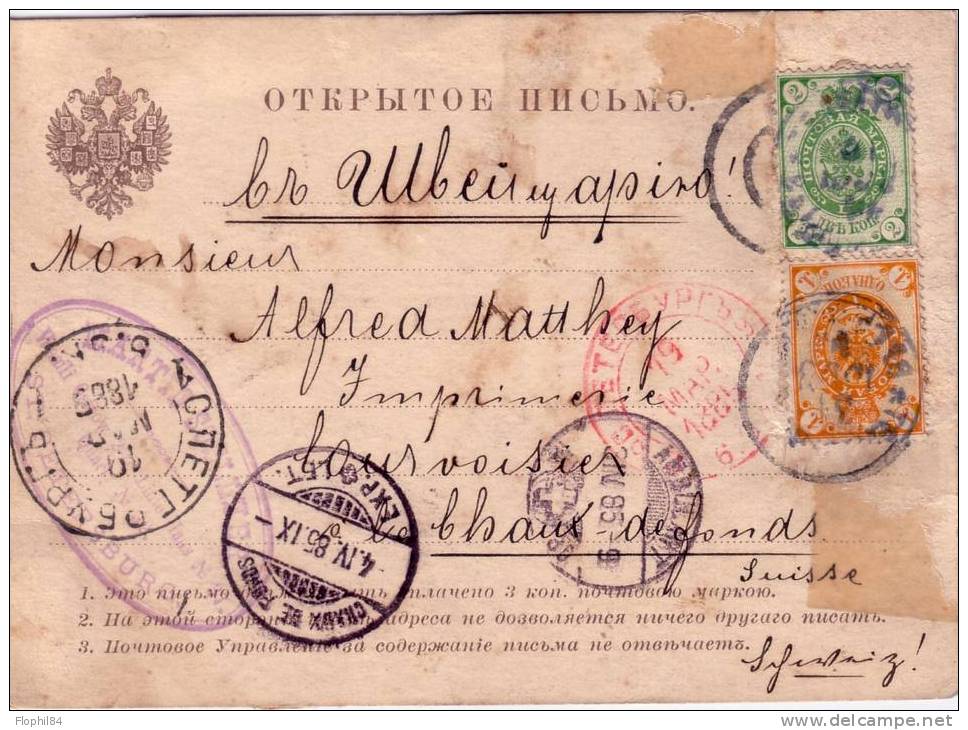 ОТКРЫТОЕ ПИСЬМО.
въ Швейцарію!
Monsieur
Alfred Matthey
Imprimerie
Courvoisier
La Chaux-de-fonds
Suisse
Schweiz!
1. Это письмо должно быть оплачено 3 коп. почтовою маркою.
2. На этой сторонѣ, кромѣ адреса не дозволяется ничего другаго писать.
3. Почтовое Управленіе за содержаніе письма не отвѣчаетъ.
2 2
ПОЧТОВАЯ МАРКА
ДВѢ КОП.
2 2
1 1
1 1
С.ПЕТЕРБУРГЪ
19
МАР.
1885
ПЕТЕРБУРГЪ
19
МАР.
6
CHAUX DE FONDS
4.IV.85.IX-
EXP. LET.
AMBULANT
IV 85
BURG
Flophil84
delcampe.net